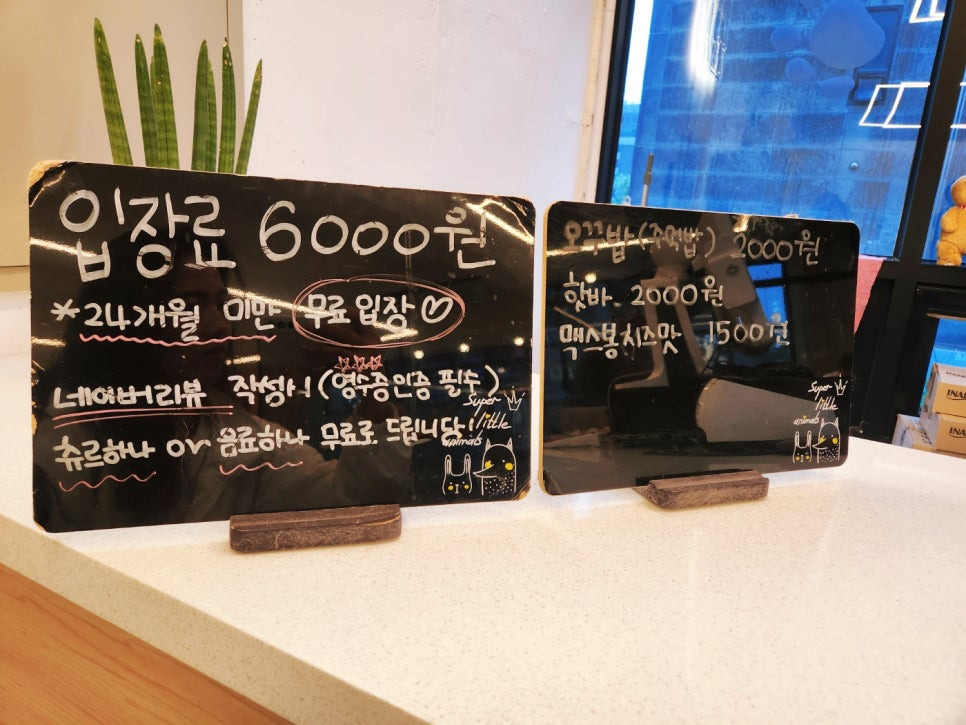 입장료 6000원
*24개월 미만 무료입장
네이버리뷰 작성시 (영수증인증 필수)
츄르하나 or 음료하나 무료로 드립니다!
Super
little
animals
오꾸밥 (주먹밥) 2000원
핫바. 2000원
맥스봉치즈맛 1500원
Super
little
animals
INA
INA